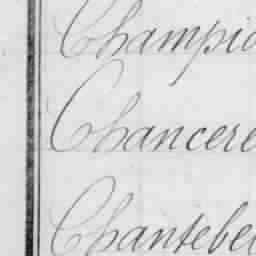 Champio
Chancere
Chantebel